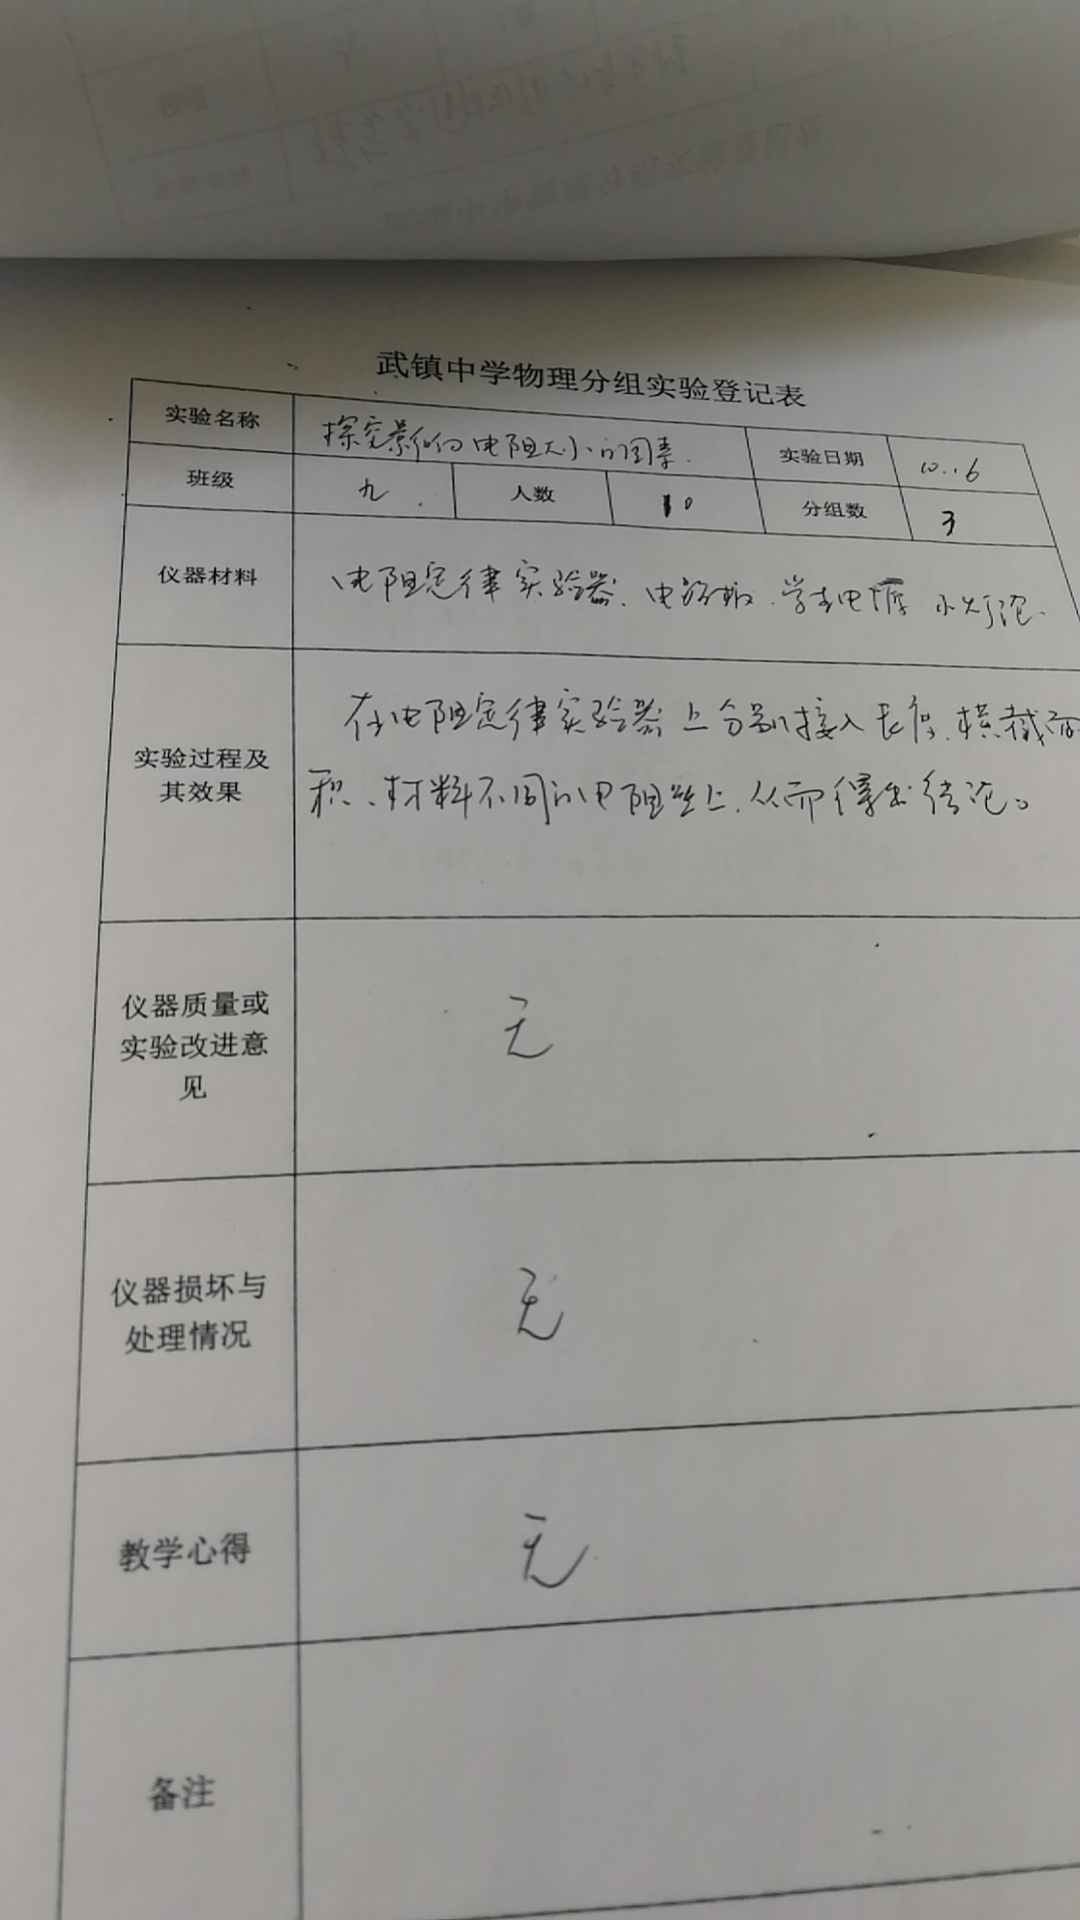 武镇中学物理分组实验登记表
实验名称 探究影响电阻大小的因素. 实验日期 10.16
班级 九. 人数 10 分组数 3
仪器材料 电阻定律实验器、电路板、学生电源 小灯泡.
在电阻定律实验器上分别接入长度、横截面
实验过程及
其效果
积、材料不同的电阻丝上,从而得出结论。
仪器质量或
实验改进意
见
无
仪器损坏与
处理情况
无
教学心得 无
备注